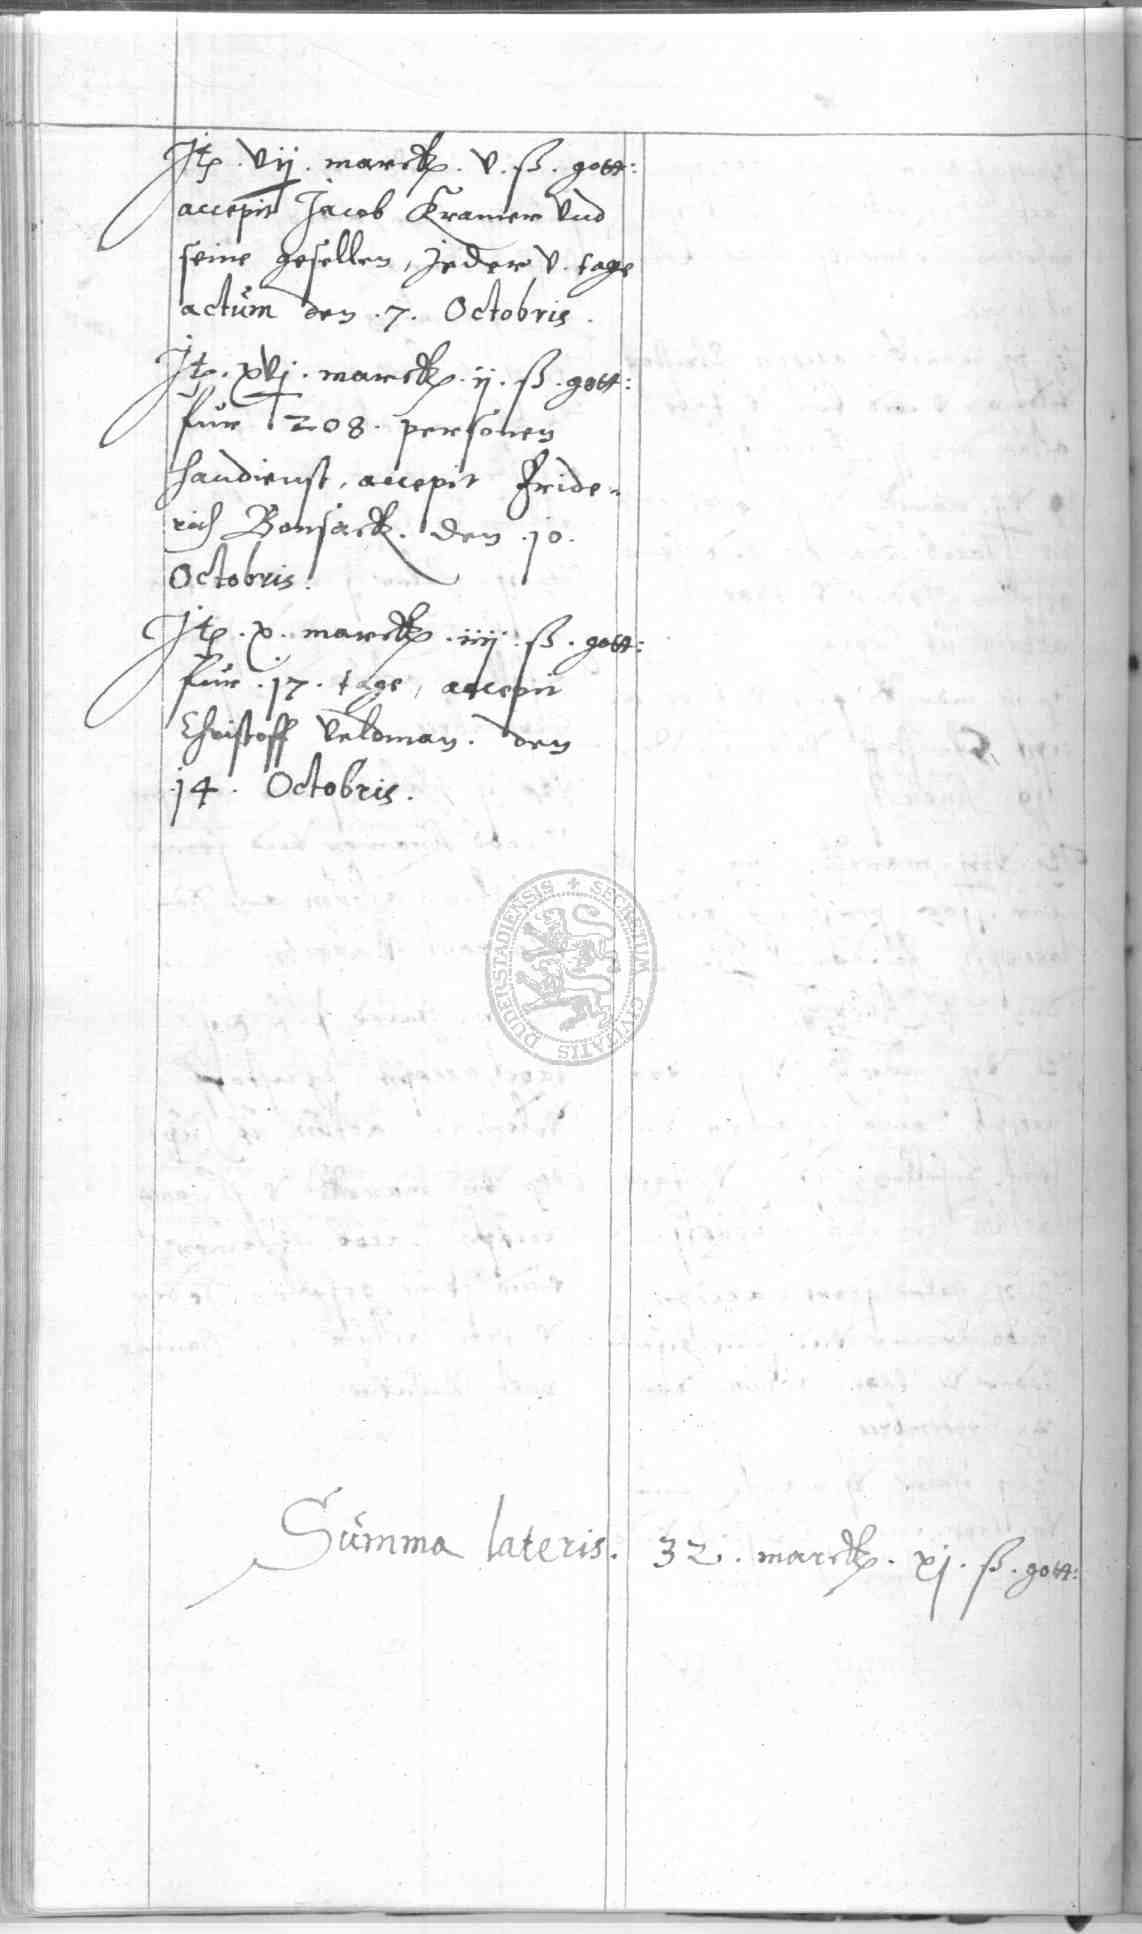 Jt₎ . vij . marck . v . ß . gott:
accepit Jacob Kramer vnd
seine gesellen, Jeder v. tage
actum den . 7 . Octobris .
Jt₎ . xvj . marck . ij . ß . gott:
fur 208 . personen
handienst, accepit Fride-
rich Bonsack . den . 10 .
Octobris .
Jt₎ . x . marck . iiij . ß . gott:
fur . 17 . tage, accepit
Christoff Veldman . den
14 . Octobris .
SECRETUM CIVITATIS DUDERSTADIENSIS
Summa lateris . 32 . marck . xj . ß . gott: